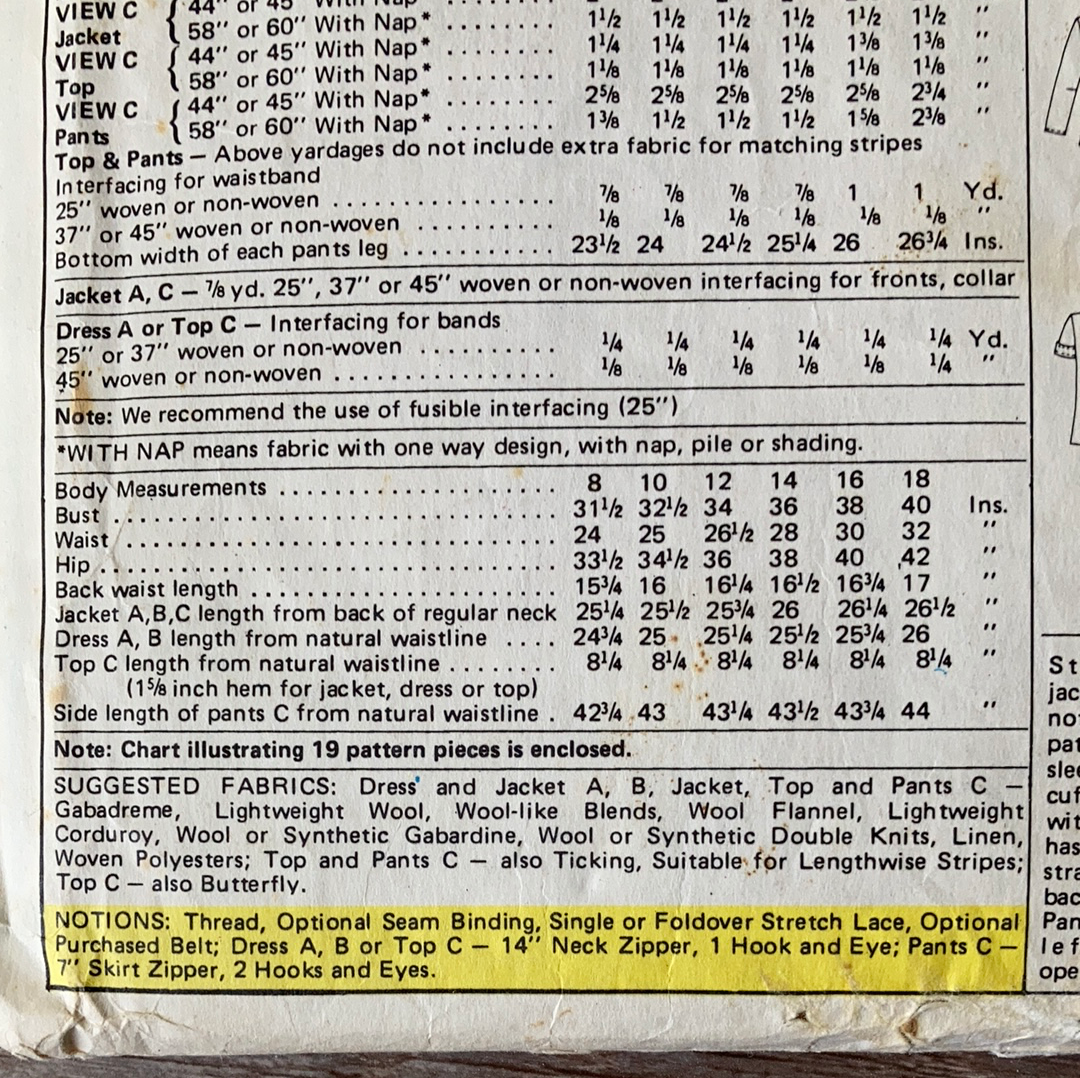 VIEW C { 44" or 45" With Nap* . . . . . . . .
Jacket { 58" or 60" With Nap* . . . . . . . . 1½ 1½ 1½ 1½ 1½ 1½ "
VIEW C { 44" or 45" With Nap* . . . . . . . . 1¼ 1¼ 1¼ 1¼ 1⅜ 1⅜ "
Top { 58" or 60" With Nap* . . . . . . . . 1⅛ 1⅛ 1⅛ 1⅛ 1⅛ 1⅛ "
VIEW C { 44" or 45" With Nap* . . . . . . . . 2⅝ 2⅝ 2⅝ 2⅝ 2⅝ 2¾ "
Pants { 58" or 60" With Nap* . . . . . . . . 1⅜ 1½ 1½ 1½ 1⅝ 2⅜ "
Top & Pants — Above yardages do not include extra fabric for matching stripes
Interfacing for waistband
25" woven or non-woven . . . . . . . . . . . . . . . . ⅞ ⅞ ⅞ ⅞ 1 1 Yd.
37" or 45" woven or non-woven . . . . . . . . . . ⅛ ⅛ ⅛ ⅛ ⅛ ⅛ "
Bottom width of each pants leg . . . . . . . . . . . 23½ 24 24½ 25¼ 26 26¾ Ins.
Jacket A, C — ⅞ yd. 25", 37" or 45" woven or non-woven interfacing for fronts, collar
Dress A or Top C — Interfacing for bands
25" or 37" woven or non-woven . . . . . . . . . . ¼ ¼ ¼ ¼ ¼ ¼ Yd.
45" woven or non-woven . . . . . . . . . . . . . . . . ⅛ ⅛ ⅛ ⅛ ⅛ ¼ "
Note: We recommend the use of fusible interfacing (25")
*WITH NAP means fabric with one way design, with nap, pile or shading.
Body Measurements . . . . . . . . . . . . . . . . . . . . 8 10 12 14 16 18
Bust . . . . . . . . . . . . . . . . . . . . . . . . . . . . . . . . 31½ 32½ 34 36 38 40 Ins.
Waist . . . . . . . . . . . . . . . . . . . . . . . . . . . . . . . 24 25 26½ 28 30 32 "
Hip . . . . . . . . . . . . . . . . . . . . . . . . . . . . . . . . . 33½ 34½ 36 38 40 42 "
Back waist length . . . . . . . . . . . . . . . . . . . . . . 15¾ 16 16¼ 16½ 16¾ 17 "
Jacket A,B,C length from back of regular neck 25¼ 25½ 25¾ 26 26¼ 26½ "
Dress A, B length from natural waistline . . . . 24¾ 25 25¼ 25½ 25¾ 26 "
Top C length from natural waistline . . . . . . . . 8¼ 8¼ 8¼ 8¼ 8¼ 8¼ "
(1⅝ inch hem for jacket, dress or top)
Side length of pants C from natural waistline . 42¾ 43 43¼ 43½ 43¾ 44 "
Note: Chart illustrating 19 pattern pieces is enclosed.
SUGGESTED FABRICS: Dress and Jacket A, B, Jacket, Top and Pants C —
Gabadreme, Lightweight Wool, Wool-like Blends, Wool Flannel, Lightweight
Corduroy, Wool or Synthetic Gabardine, Wool or Synthetic Double Knits, Linen,
Woven Polyesters; Top and Pants C — also Ticking, Suitable for Lengthwise Stripes;
Top C — also Butterfly.
NOTIONS: Thread, Optional Seam Binding, Single or Foldover Stretch Lace, Optional
Purchased Belt; Dress A, B or Top C — 14" Neck Zipper, 1 Hook and Eye; Pants C —
7" Skirt Zipper, 2 Hooks and Eyes.
St
jac
pat
slee
cuf
wit
has
stra
bac
Pan
lef
ope